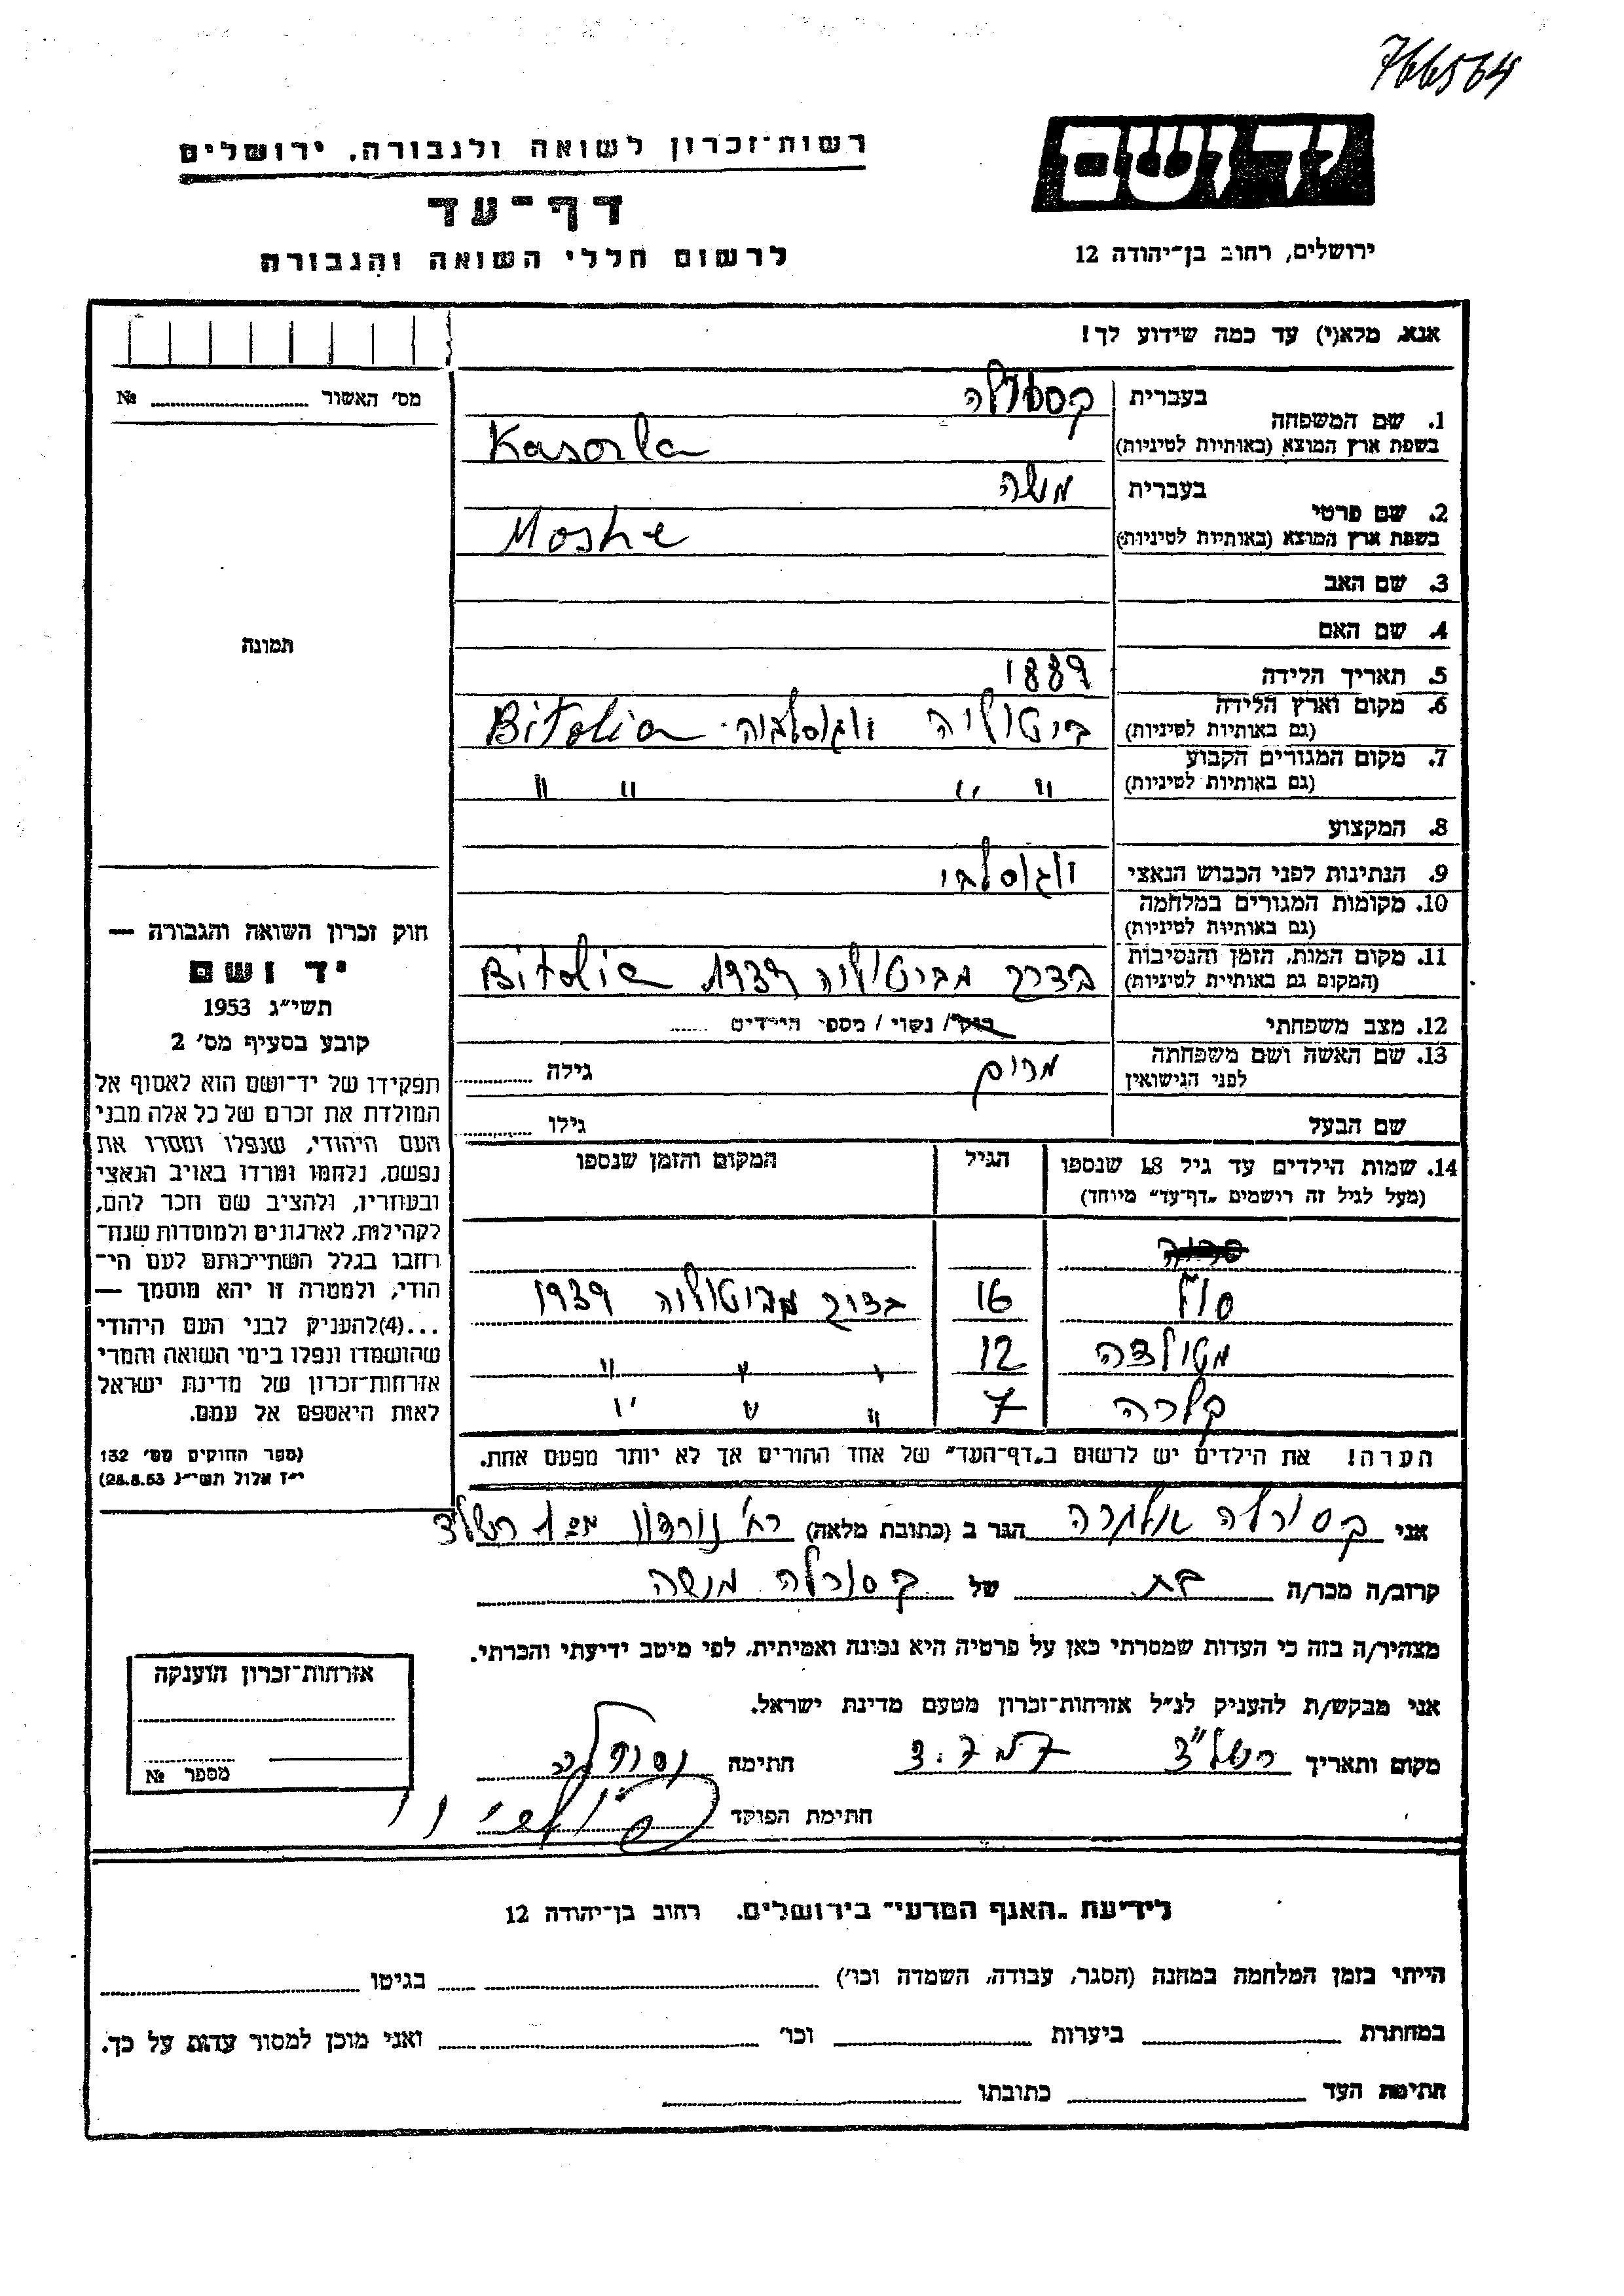 766564
יד ושם
רשות־זכרון לשואה ולגבורה, ירושלים
דף־עד
לרשום חללי השואה והגבורה
ירושלים, רחוב בן־יהודה 12
אנא, מלא(י) עד כמה שידוע לך!
מס' האשור № 
1. שם המשפחה בעברית קסורלה
בשפת ארץ המוצא (באותיות לטיניות) Kasorla
2. שם פרטי בעברית משה
בשפת ארץ המוצא (באותיות לטיניות) Moshe
3. שם האב
4. שם האם
תמונה
5. תאריך הלידה 1889
6. מקום וארץ הלידה (גם באותיות לטיניות) ביטוליה יוגוסלביה. Bitolia
7. מקום המגורים הקבוע (גם באותיות לטיניות) " " " "
8. המקצוע
9. הנתינות לפני הכבוש הנאצי יוגוסלבי
10. מקומות המגורים במלחמה (גם באותיות לטיניות)
11. מקום המות, הזמן והנסיבות (המקום גם באותיות לטיניות) בדרך מביטוליה 1939 Bitolia
12. מצב משפחתי רווק/ נשוי / מספר הילדים
13. שם האשה ושם משפחתה לפני הנישואין מרים גילה
שם הבעל גילו
14. שמות הילדים עד גיל 18 שנספו הגיל המקום והזמן שנספו
(מעל לגיל זה רושמים „דף־עד" מיוחד)
16 בדרך מביטוליה 1939
מטולדה 12 " " "
קלרה 7 " " "
הערה! את הילדים יש לרשום ב„דף־העד" של אחד ההורים אך לא יותר מפעם אחת.
חוק זכרון השואה והגבורה —
יד ושם
תשי"ג 1953
קובע בסעיף מס' 2
תפקידו של יד־ושם הוא לאסוף אל
המולדת את זכרם של כל אלה מבני
העם היהודי, שנפלו ומסרו את
נפשם, נלחמו ומרדו באויב הנאצי
ובעוזריו, ולהציב שם וזכר להם,
לקהילות, לארגונים ולמוסדות שנח־
רחבו בגלל השתייכותם לעם הי־
הודי, ולמטרה זו יהא מוסמך —
...(4)להעניק לבני העם היהודי
שהושמדו ונפלו בימי השואה והמרי
אזרחות־זכרון של מדינת ישראל
לאות היאספם אל עמם.
(ספר החוקים מס' 132
י"ז אלול תשי"ג 28.8.53)
אני קסורלה הגר ב (כתובת מלאה) רח' נורדוי
קרוב/ה מכר/ה בת של קסורלה משה
מצהיר/ה בזה כי העדות שמסרתי כאן על פרטיה היא נכונה ואמיתית, לפי מיטב ידיעתי והכרתי.
אני מבקש/ת להעניק לנ"ל אזרחות־זכרון מטעם מדינת ישראל.
מקום ותאריך חתימה
חתימת הפוקד
אזרחות־זכרון הוענקה
מספר №
לידיעת „האגף המדעי" בירושלים. רחוב בן־יהודה 12
הייתי בזמן המלחמה במחנה (הסגר, עבודה, השמדה וכו') בגיטו
במחתרת ביערות וכו' ואני מוכן למסור עדות על כך.
חתימת העד כתובתו